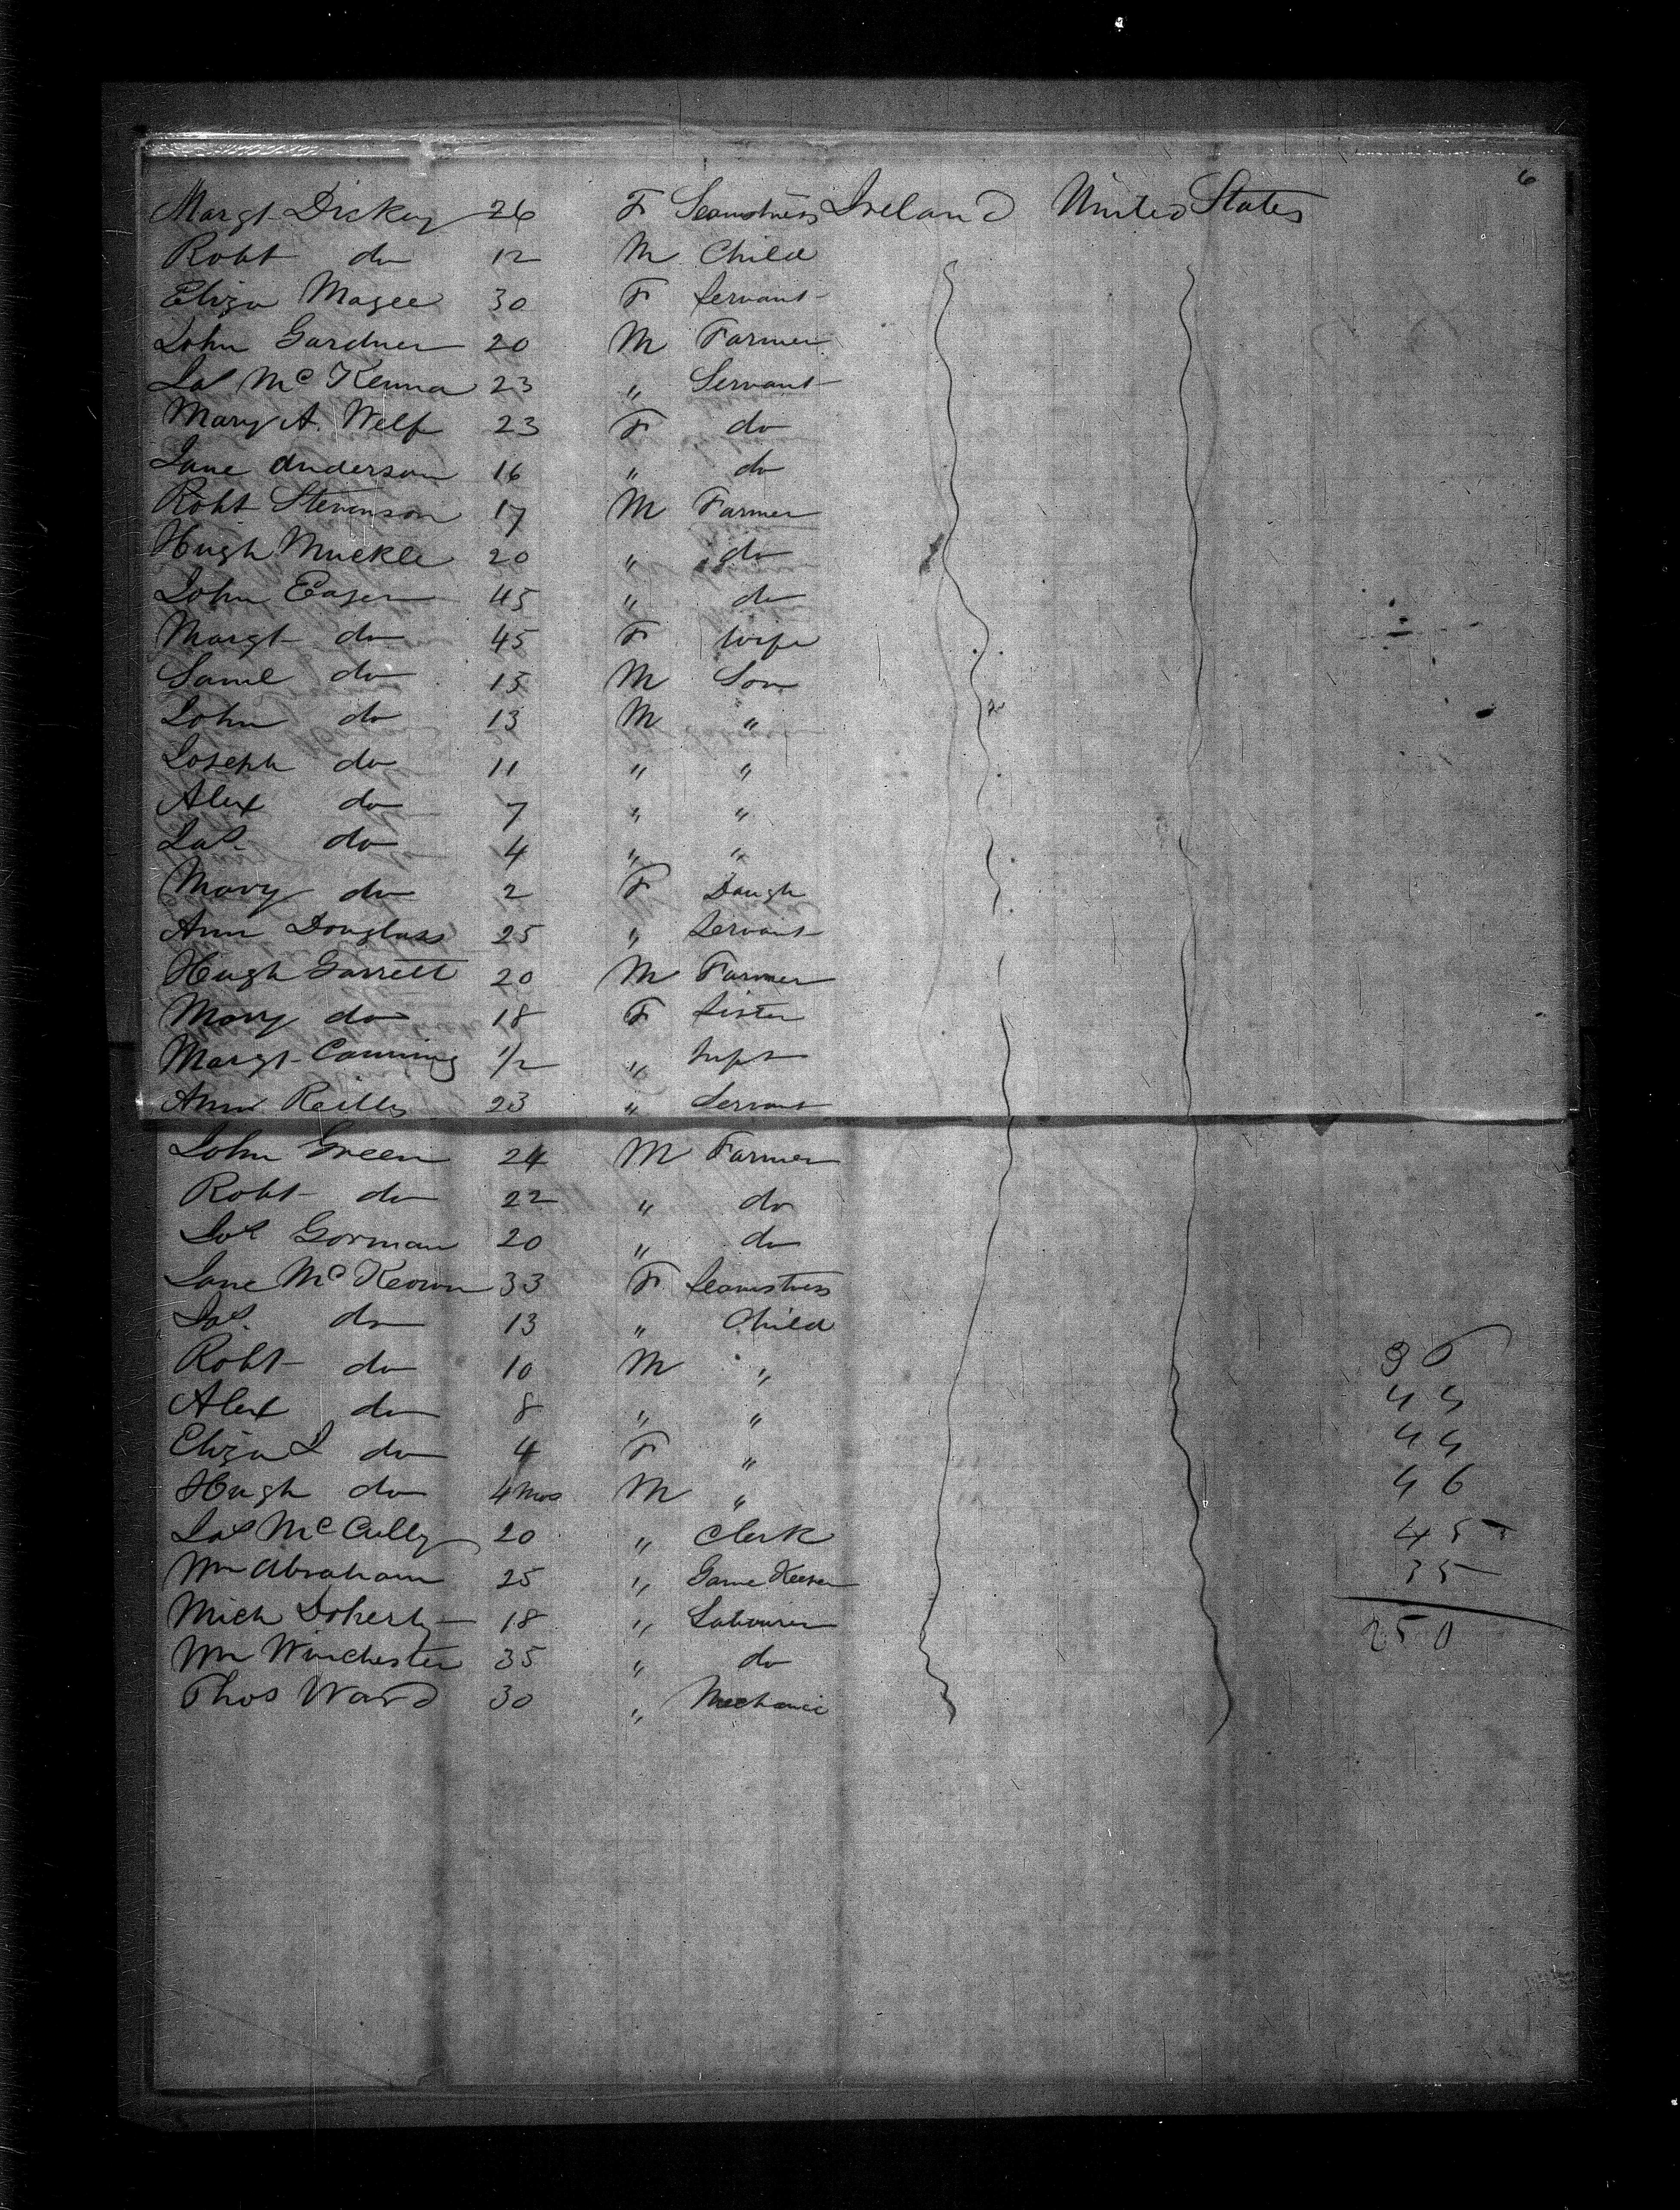 6
Margt Dickey 26 F Seamstress Ireland United States
Robt do 12 M Child
Eliza Magee 30 F Servant
John Gardner 20 M Farmer
Jas McKenna 23 " Servant
Mary A. Welf 23 F do
Jane Anderson 16 " do
Robt Stevenson 17 M Farmer
Hugh Muckle 20 " do
John Eager 45 " do
Margt do 45 F Wife
Saml do 15 M Son
John do 13 M "
Joseph do 11 " "
Alex do 7 " "
Jas. do 4 " "
Mary do 2 F Daugh
Ann Douglass 25 " Servant
Hugh Garrett 20 M Farmer
Mary do 18 F Sister
Margt Canning 1/2 " Inft
Ann Reilly 23 " Servant
John Green 24 M Farmer
Robt do 22 " do
Jos Gorman 20 " do
Jane McKeown 33 F Seamstress
Jas. do 13 " Child
Robt do 10 M "
Alex do 8 " "
Eliza J do 4 F "
Hugh do 4 mos M "
Jas McCully 20 " Clerk
Wm Abraham 25 " Game Keeper
Mich Doherty 18 " Labourer
Wm Winchester 35 " do
Thos Ward 30 " Mechanic
36
44
44
46
45
35
250